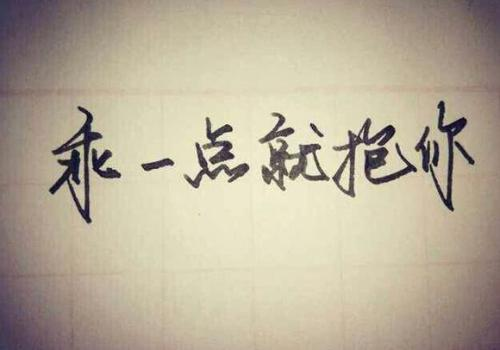 乖一点就抱你